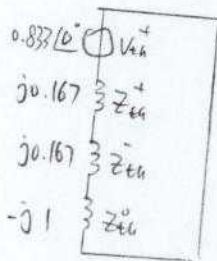 0.833∠0° V_th^+
j0.167 Z_th^+
j0.167 Z_th^-
-j1 Z_th^0